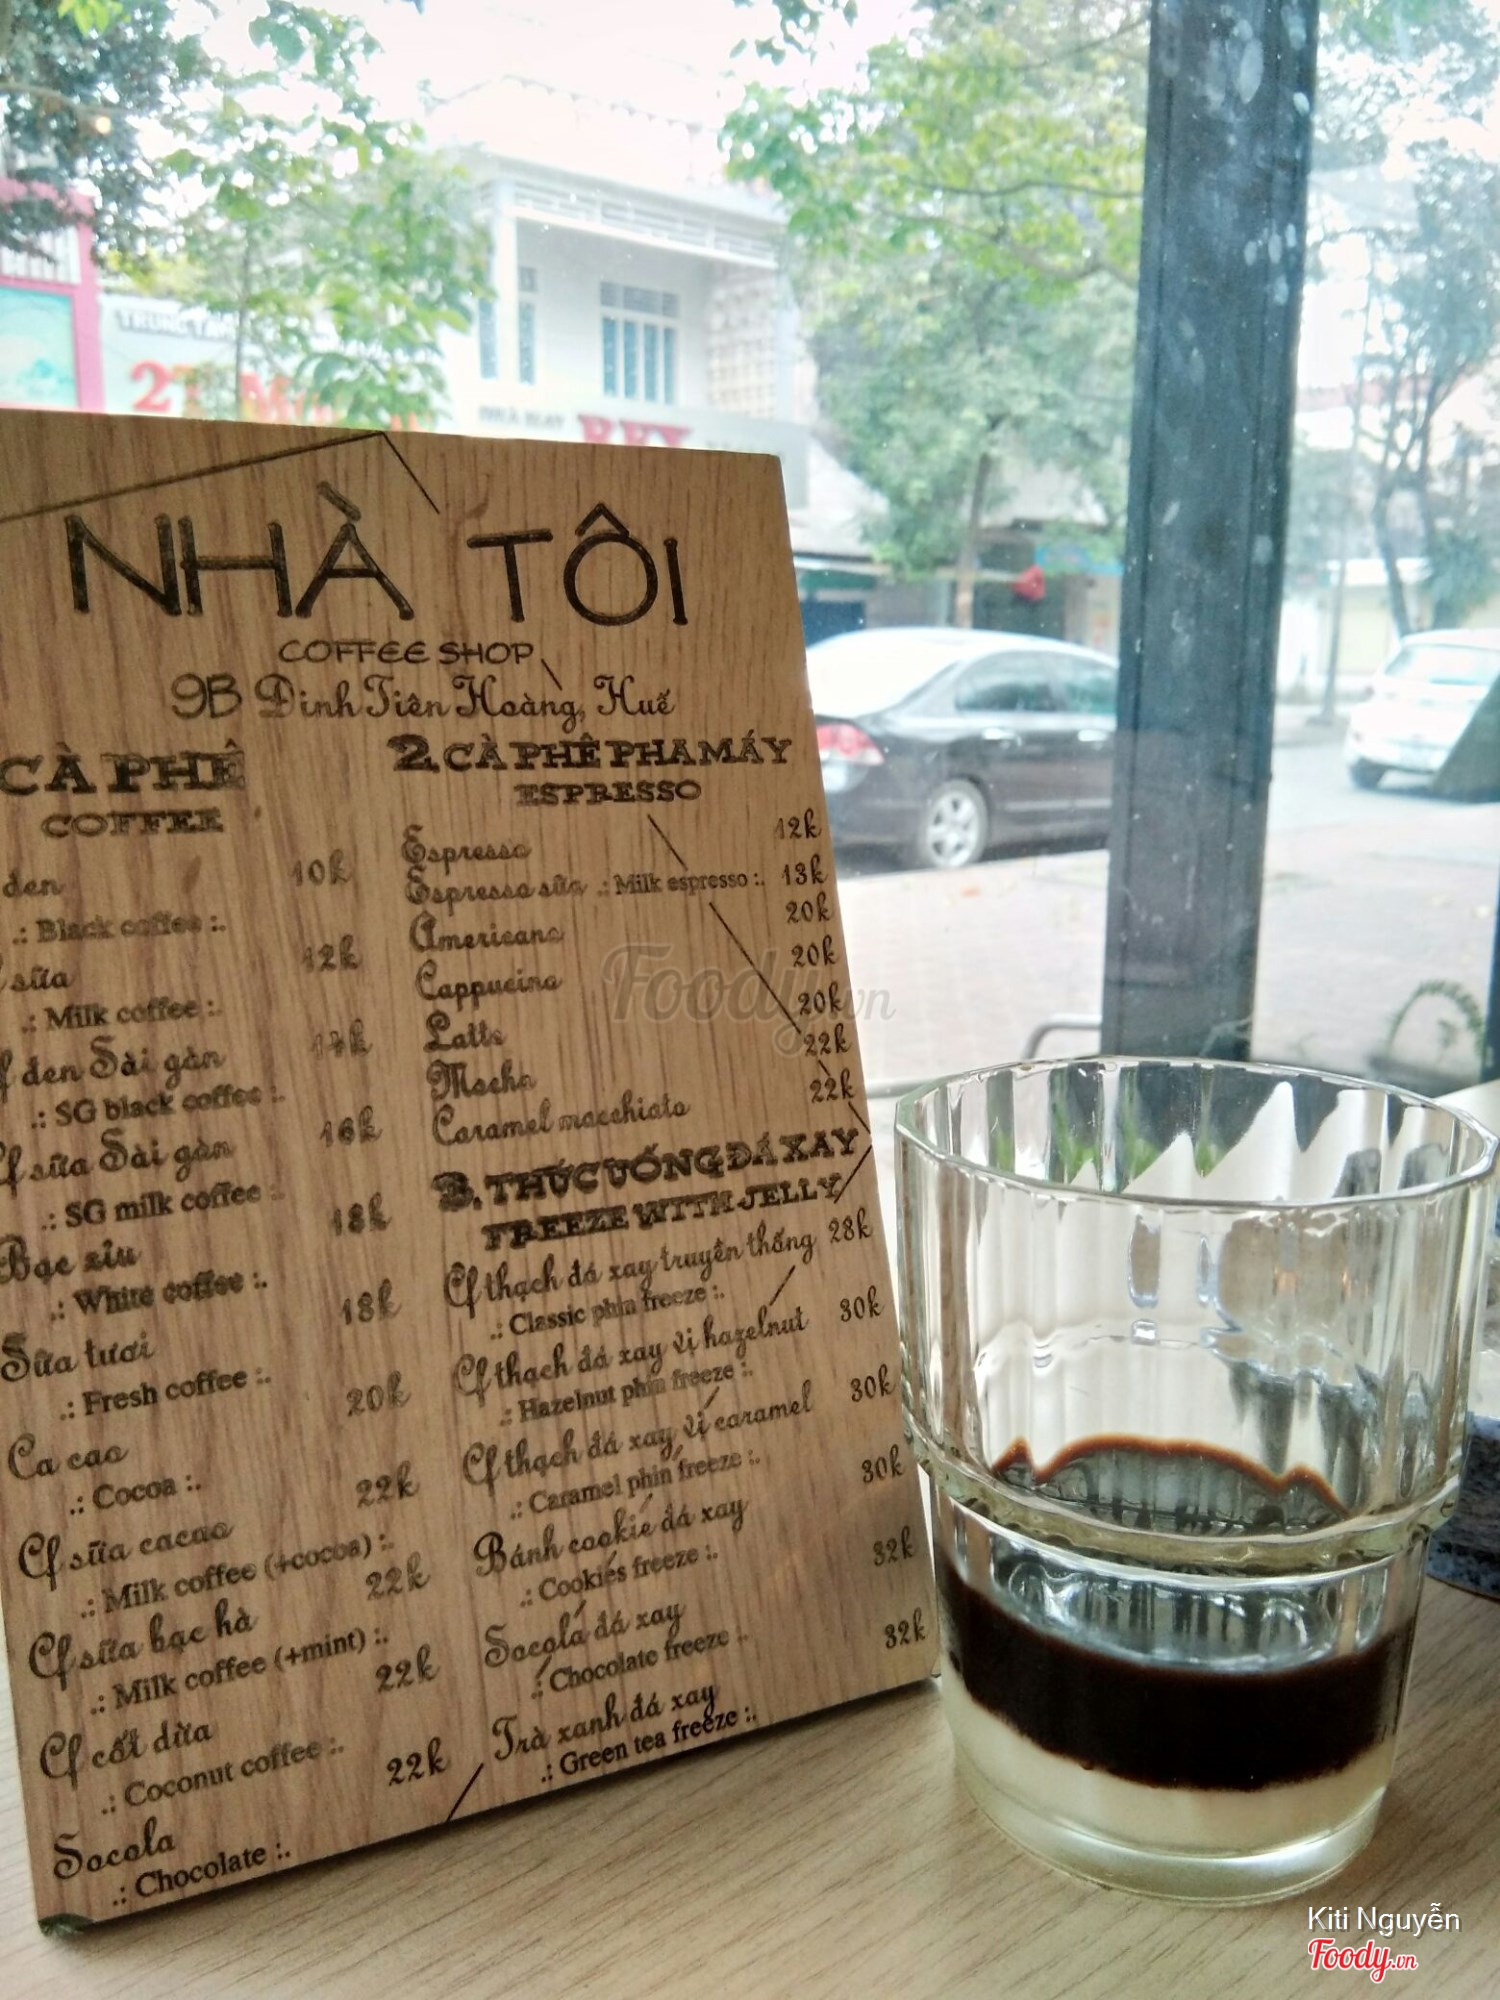 TRUNG TÂM
NHÀ MAY
REX
NHÀ TÔI
COFFEE SHOP
9B Đinh Tiên Hoàng, Huế
CÀ PHÊ
COFFEE
đen 10k
.: Black coffee :.
sữa 12k
.: Milk coffee :.
Cf đen Sài gòn 14k
.: SG black coffee :.
Cf sữa Sài gòn 16k
.: SG milk coffee :.
Bạc xỉu 18k
.: White coffee :.
Sữa tươi 18k
.: Fresh coffee :.
Ca cao 20k
.: Cocoa :.
Cf sữa cacao 22k
.: Milk coffee (+cocoa) :.
Cf sữa bạc hà 22k
.: Milk coffee (+mint) :.
Cf cốt dừa 22k
.: Coconut coffee :.
Socola 22k
.: Chocolate :.
2. CÀ PHÊ PHA MÁY
ESPRESSO
Espresso 12k
Espresso sữa .: Milk espresso :. 13k
Americano 20k
Cappucino 20k
Latte 20k
Mocha 22k
Caramel macchiato 22k
3. THỨC UỐNG ĐÁ XAY
FREEZE WITH JELLY
Cf thạch đá xay truyền thống 28k
.: Classic phin freeze :.
Cf thạch đá xay vị hazelnut 30k
.: Hazelnut phin freeze :.
Cf thạch đá xay vị caramel 30k
.: Caramel phin freeze :.
Bánh cookie đá xay 30k
.: Cookies freeze :.
Socola đá xay 32k
.: Chocolate freeze :.
Trà xanh đá xay 32k
.: Green tea freeze :.
Foody.vn
Kiti Nguyễn
Foody.vn